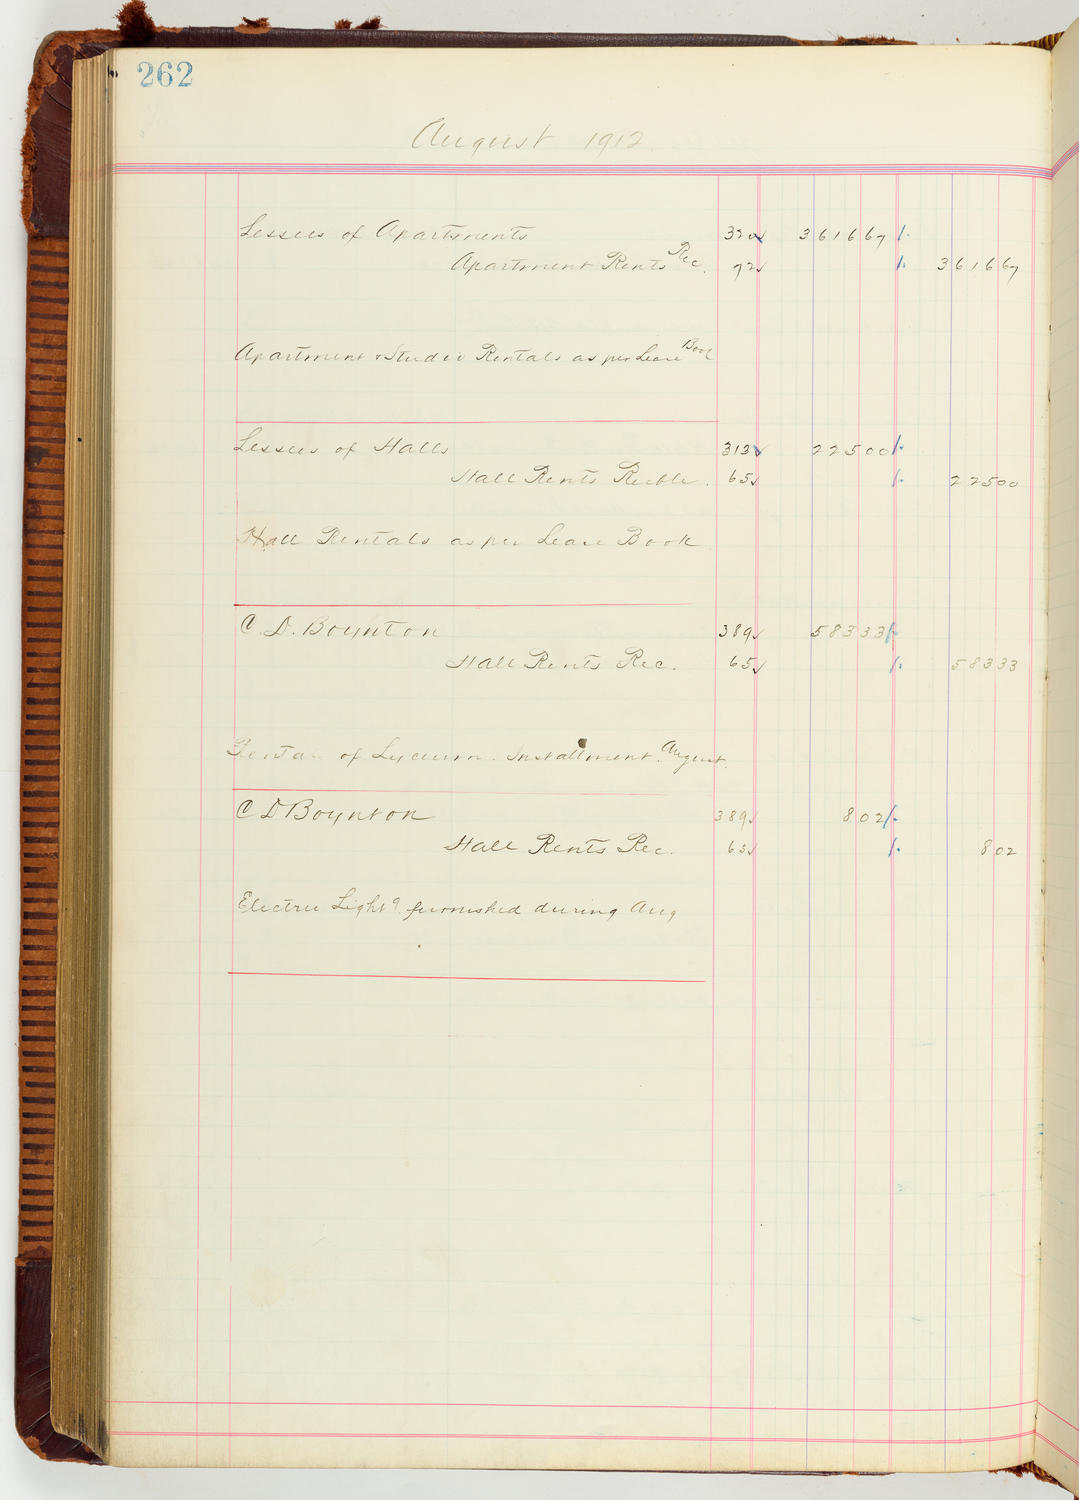 262
August 1912
Lessees of Apartments 320 ✓ 3616 67
Apartment Rents Rec. 72 ✓ 3616 67
Apartment & Studio Rentals as per Lease Book
Lessees of Halls 313 ✓ 225 00
Hall Rents Recble. 65 ✓ 225 00
Hall Rentals as per Lease Book
C. D. Boynton 389 ✓ 583 33
Hall Rents Rec. 65 ✓ 583 33
Rental of Lyceum. Installment. August.
C D Boynton 389 ✓ 8 02
Hall Rents Rec. 65 ✓ 8 02
Electric Light g. furnished during Aug